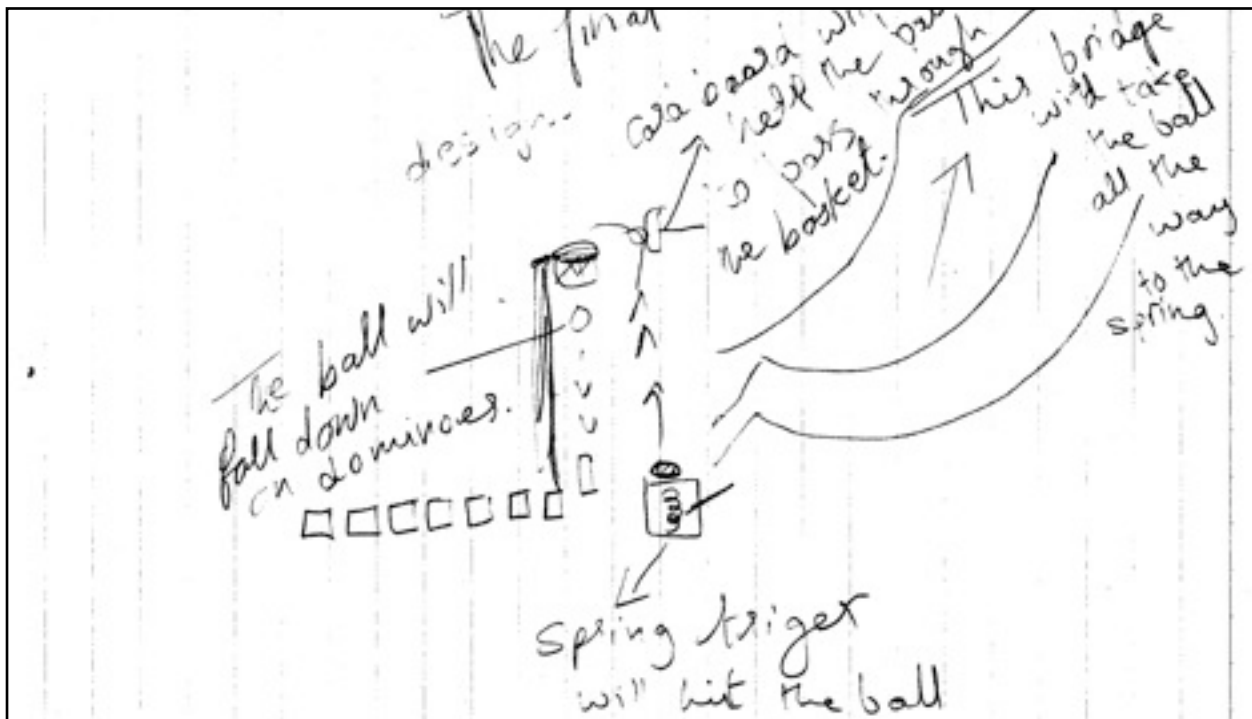 The final
design..
cardboard will
help the ball
to pass through
the basket.
This bridge
will take
the ball
all the
way
to the
spring.
The ball will
fall down
on dominoes.
Spring triger
will hit the ball